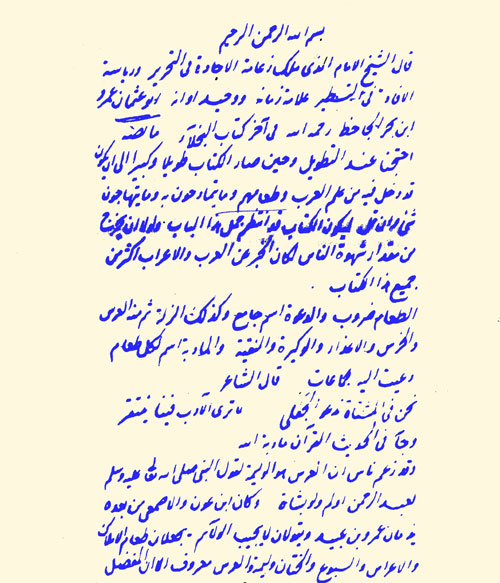 بسم الله الرحمن الرحيم
قال الشيخ الامام الذى ملك زعامة الاجادة فى التحرير ورياسة
الافادة فى التسطير علامة زمانه ووحيد اوانه ابو عثمان عمرو
ابن بحر الجاحظ رحمه الله فى آخر كتاب البخلاء ما نصه
احتجنا عند التطويل وحين صار الكتاب طويلا وكبيرا الى ان يكون
قد دخل فيه من علم العرب وطعامهم وما يتمادحون به وما يتهاجون
شئ وان قل ليكون الكتاب قد انتظم جمل هذا الباب ولولا ان يخرج
من مقدار شهوة الناس لكان الخبر عن العرب والاعراب اكثر من
جميع هذا الكتاب
الطعام ضروب والدعوة اسم جامع وكذلك الزلة ثم منه العرس
والخرس والاعذار والوكيرة والنقيعة والمادبة اسم لكل طعام
دعيت اليه الجماعات قال الشاعر
نحن فى المشتاة ندعو الجفلى ما ترى الآدب فينا ينتقر
وجآ فى الحديث القرآن مادبة الله
وقد زعم ناس ان العرس هو الوليمة لقول النبى صلى الله عليه وسلم
لعبد الرحمن اولم ولو بشاة وكان ابن عون والاصمعى من بعده
يذمان عمرو بن عبيد ويقولان لا يجيب الولائم يجعلان طعام الاملاك
والاعراس والسبوع والختان وليمة والعرس معروف الا ان المفضل